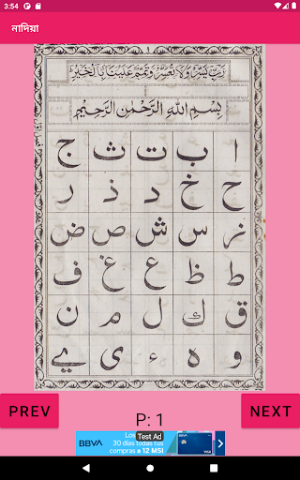 3:54
নাদিয়া
١
رَبِّ يَسِّرْ وَلَا تُعَسِّرْ وَتَمِّمْ عَلَيْنَا بِالْخَيْرِ
بِسْمِ اللهِ الرَّحْمٰنِ الرَّحِيْمِ
ا ب ت ث ج
ح خ د ذ ر
ز س ش ص ض
ط ظ ع غ ف
ق ك ل م ن
و ه ء ی ے
PREV
P: 1
NEXT
BBVA
Los
Test Ad
30 días todas tus
compras a 12 MSI